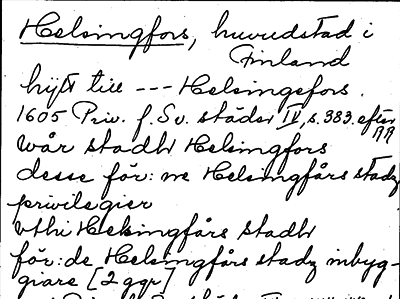 Helsingfors, huvudstad i
Finland
hijt till --- Helsingefors.
1605 Priv. f. Sv. städer IV, s. 383. efter
RA
wår stadh Helsingfors
desse för:ne Helsingfårs stadz
privilegier
vthi Helsingfårs stadh
för:de Helsingfårs stadz inbyg-
giare [2 ggr]